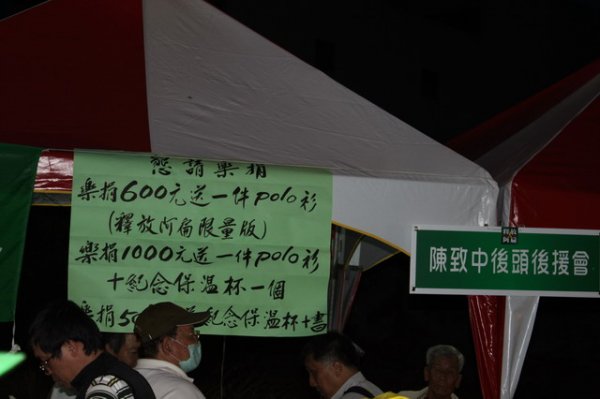 懇請樂捐
樂捐600元送一件polo衫
(釋放阿扁限量版)
樂捐1000元送一件polo衫
十紀念保溫杯一個
樂捐50 紀念保溫杯十書
陳致中後頭後援會